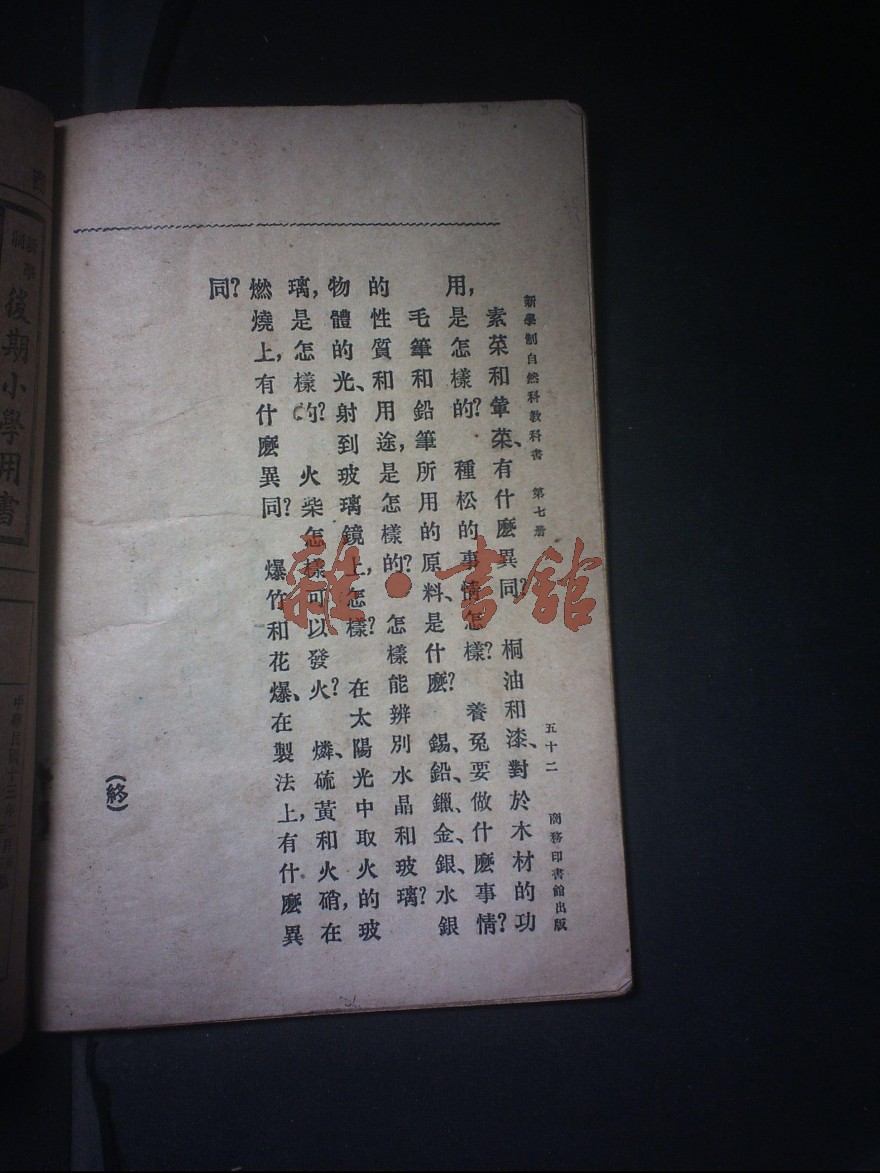 新學制自然科教科書 第七册 五十二 商務印書館出版
素菜和葷菜、有什麽異同？ 桐油和漆、對於木材的功
用，是怎樣的？ 種松的事情怎樣？ 養兔要做什麽事情？
毛筆和鉛筆所用的原料、是什麽？ 錫、鉛、鑞、金、銀、水銀
的性質和用途，是怎樣的？ 怎樣能辨別水晶和玻璃？
物體的光、射到玻璃鏡上，怎樣？ 在太陽光中取火的玻
璃，是怎樣的？ 火柴怎樣可以發火？ 燐、硫黃和火硝，在
燃燒上，有什麽異同？ 爆竹和花爆、在製法上，有什麽異
同？
(終)
新學制
後期小學用書
中華民國十三年
雜·書館